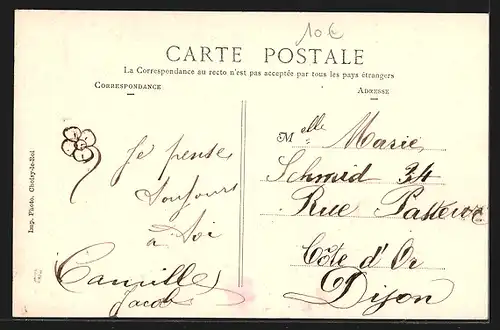 10€
CARTE POSTALE
La Correspondance au recto n'est pas acceptée par tous les pays étrangers
CORRESPONDANCE
ADRESSE
Imp. Photo. Choisy-le-Roi
Je pense
toujours
à toi
Camille
Jacob
Melle Marie
Schmid 34
Rue Pasteur
Côte d'Or
Dijon